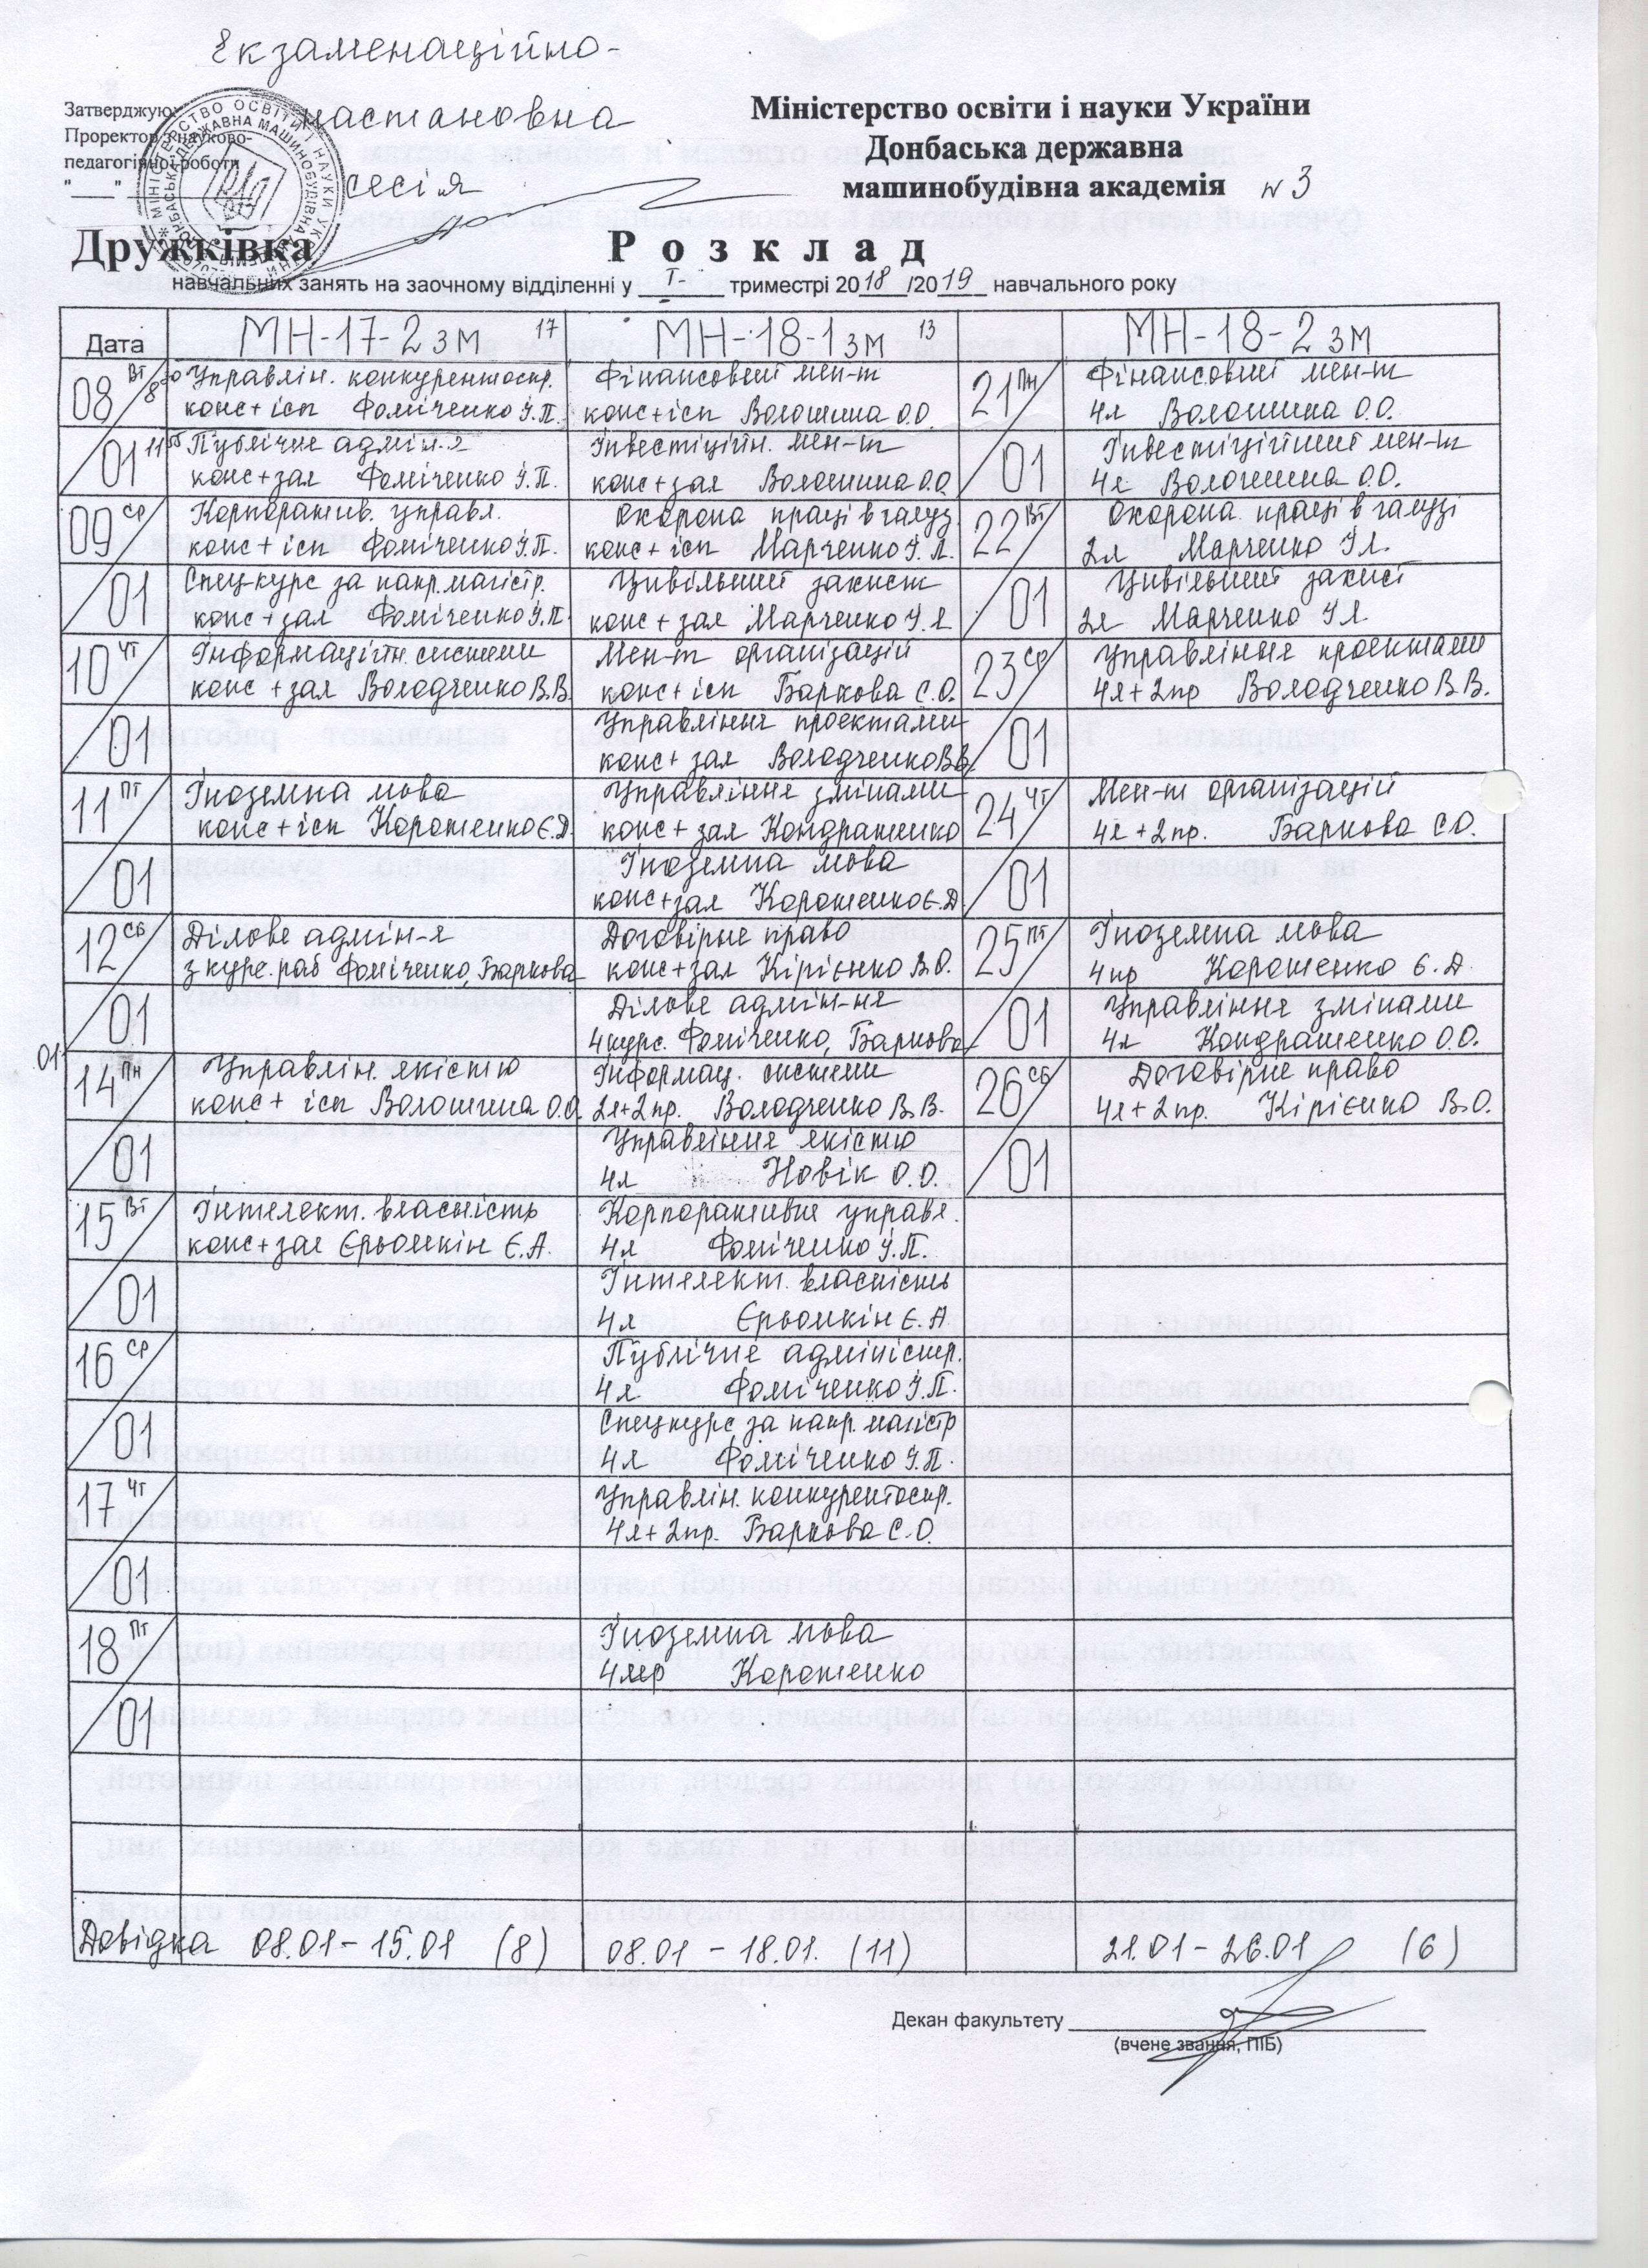 Екзаменаційно-
настановна
сесія
Затверджую:
Проректор з науково-
педагогічної роботи
Міністерство освіти і науки України
Донбаська державна
машинобудівна академія №3
Дружківка
Розклад
навчальних занять на заочному відділенні у I- триместрі 2018/2019 навчального року
Дата МН-17-2зм 17 МН-18-1зм 13 МН-18-2зм
08 вт 8 30 Управлін. конкурентоспр. Фінансовий мен-т 21 пн Фінансовий мен-т
конс+ісп Фоміченко І.П. конс+ісп Волошина О.О. 4л Волошина О.О.
01 Публічне адмін-я Інвестиційн. мен-т 01 Інвестиційний мен-т
конс+зал Фоміченко І.П. конс+зал Волошина О.О. 4л Волошина О.О.
09 ср Корпоратив. управл. Охорона праці в галуз. 22 вт Охорона праці в галузі
конс+ісп Фоміченко І.П. конс+ісп Марченко І.Л. 2л Марченко І.Л.
01 Спецкурс за напр.магістр. Цивільний захист 01 Цивільний захист
конс+зал Фоміченко І.П. конс+зал Марченко І.Л. 2л Марченко І.Л.
10 чт Інформаційн. системи Мен-т організацій 23 ср Управління проектами
конс+зал Володченко В.В. конс+ісп Баркова С.О. 4л+2пр Володченко В.В.
01 Управління проектами 01
конс+зал Володченко В.В.
11 пт Іноземна мова Управління змінами 24 чт Мен-т організацій
конс+ісп Корошенко Є.Д. конс+зал Кондратенко 4л+2пр. Баркова С.О.
01 Іноземна мова 01
конс+зал Корошенко Є.Д.
12 сб Ділове адмін-я Договірне право 25 пт Іноземна мова
з курс.раб Фоміченко, Баркова конс+зал Кірієнко В.О. 4пр Корошенко Є.Д.
01 Ділове адмін-ня 01 Управління змінами
4курс. Фоміченко, Баркова 4л Кондратенко О.О.
01
14 пн Управлін. якістю Інформац. системи 26 сб Договірне право
конс+ісп Волошина О.О. 2л+2пр. Володченко В.В. 4л+2пр. Кірієнко В.О.
01 Управління якістю 01
4л Новік О.О.
15 вт Інтелект. власність Корпоративне управл.
конс+зал Єрьомкін Є.А. 4л Фоміченко І.П.
01 Інтелект. власність
4л Єрьомкін Є.А
16 ср Публічне адміністр.
4л Фоміченко І.П.
01 Спецкурс за напр. магістр
4л Фоміченко І.П.
17 чт Управлін. конкурентоспр.
4л+2пр. Баркова С.О.
01
18 пт Іноземна мова
Корошенко
01
Довідка 08.01-15.01 (8) 08.01-18.01. (11) 21.01-26.01 (6)
Декан факультету
(вчене звання, ПІБ)